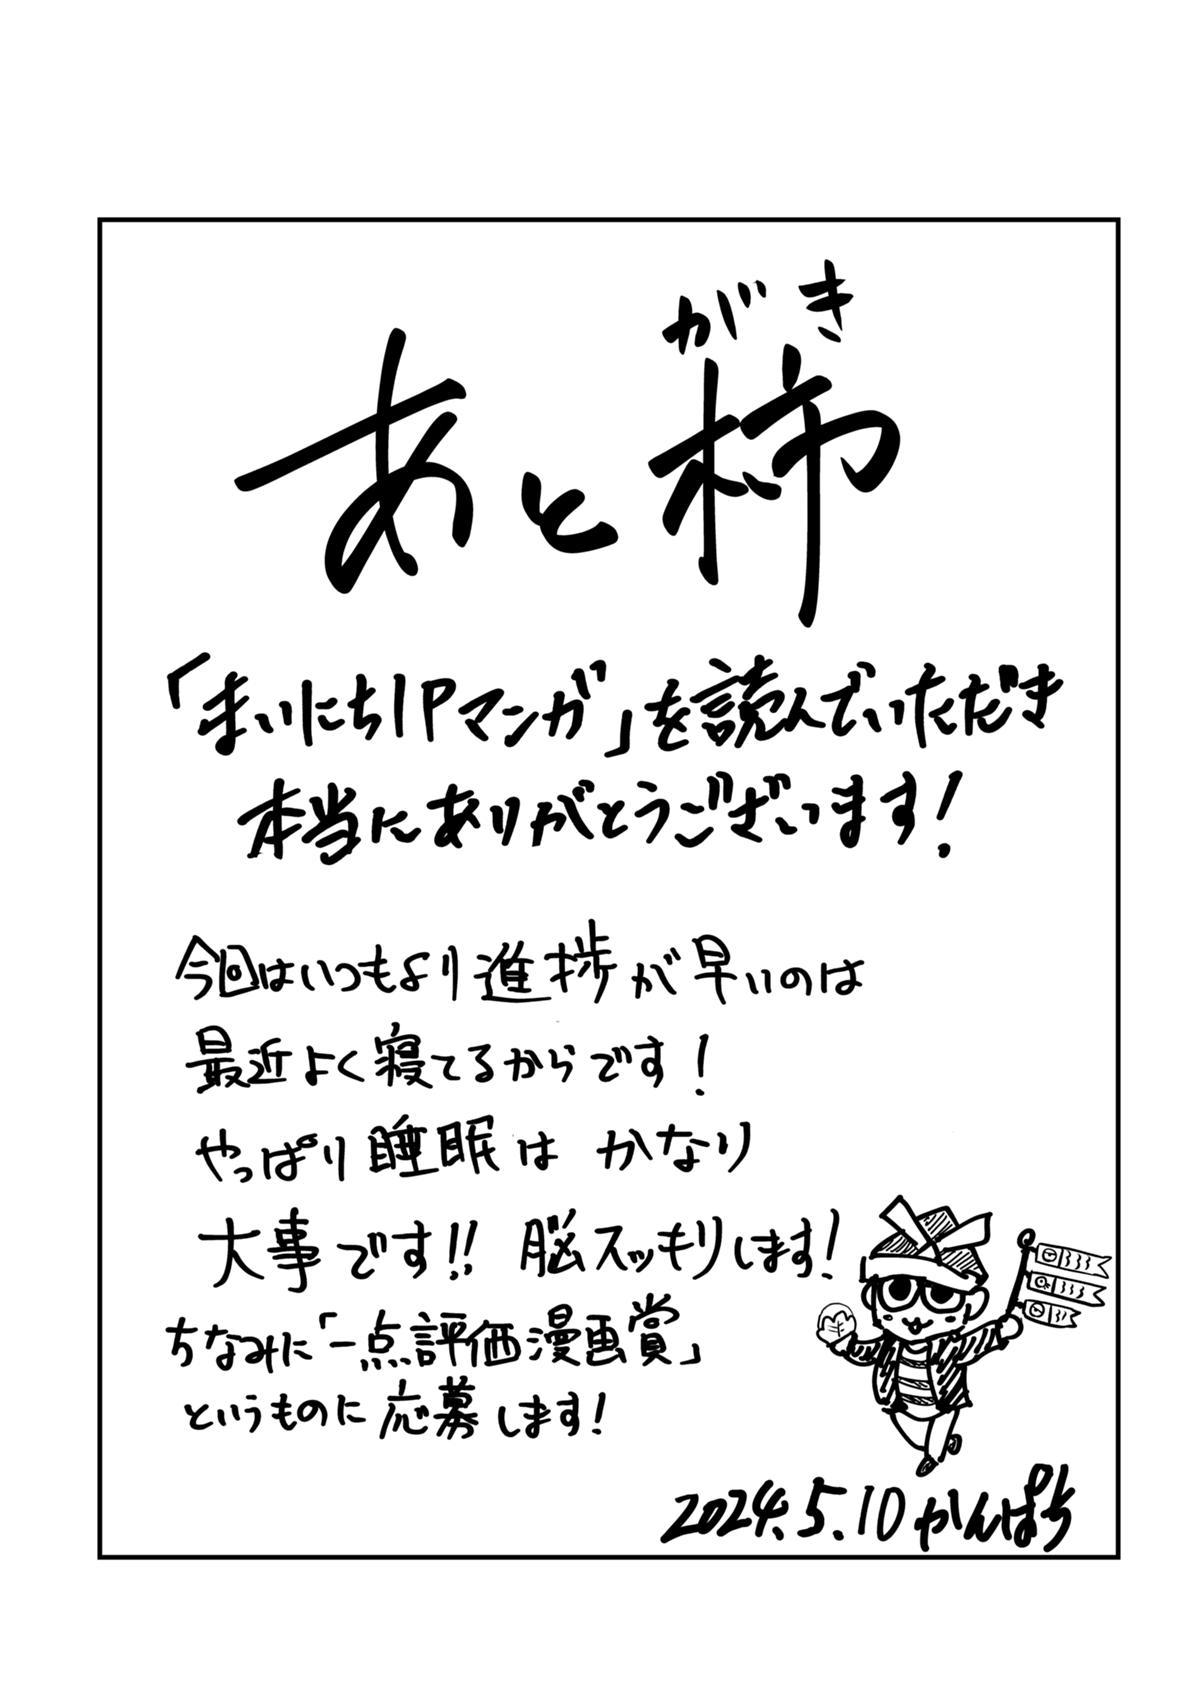 あと柿
がき
「まいにち1Pマンガ」を読んでいただき
本当にありがとうございます!
今回はいつもより進捗が早いのは
最近よく寝てるからです!
やっぱり睡眠はかなり
大事です!! 脳スッキリします!
ちなみに「一点評価漫画賞」
というものに応募します!
2024.5.10 かんぱち